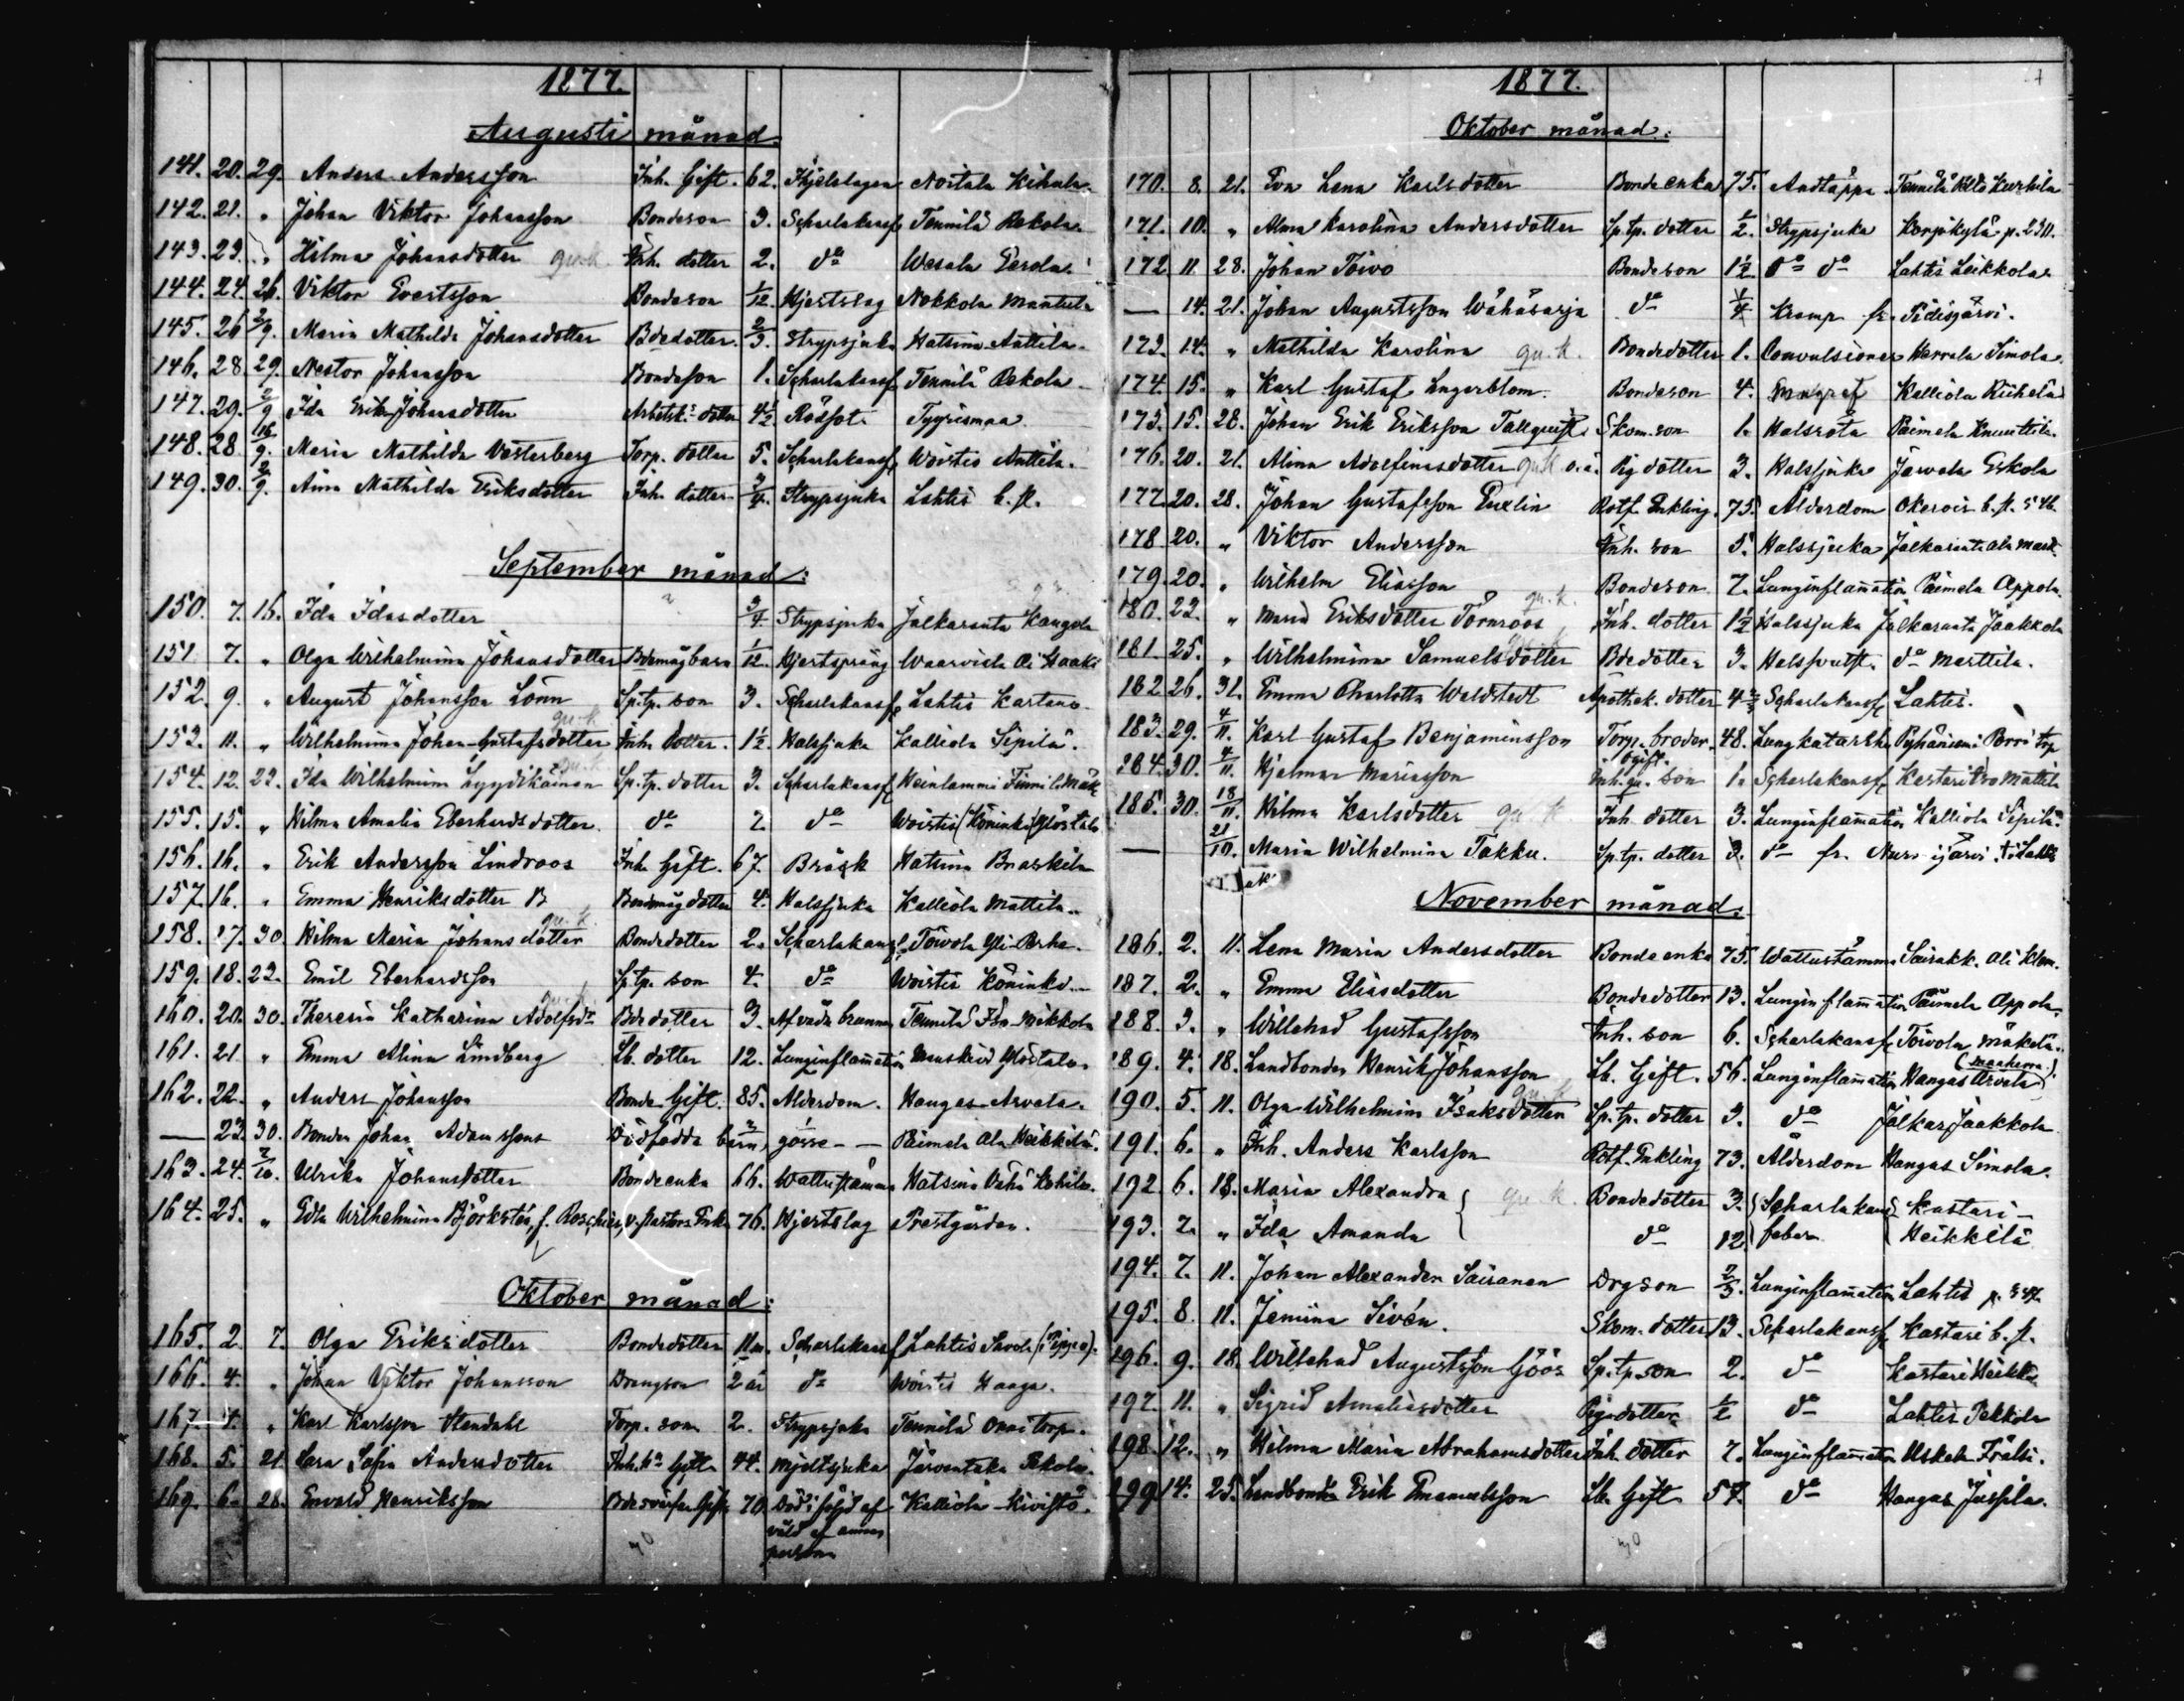 1877.
Augusti månad.
141. 20. 29. Anders Andersson Inh. Gift. 62. Nostala Kihula.
142. 21. " Johan Viktor Johansson Bondeson 3. Scharlakansf Tennilä Rekola.
143. 23. " Hilma Johansdotter qu.k. Inh. dotter 2. do Wesala Eerola.
144. 24. 26. Viktor Evertsson Bondeson 1/12 Hjertslag Nokkola Mantila
145. 26 2/9. Maria Mathilda Johansdotter Bdedotter. 2/3. Strypsjuka Hatsina Anttila.
146. 28 29. Nestor Johansson Bondeson 1. Scharlakansf Tennilä Rekola
147. 29. 2/9 Ida Erika Johansdotter Arbetsk: dotter 4 1/2 Rödsot. Tyyrismaa.
148. 28 16/9. Maria Mathilda Vesterberg Torp. dotter 5. Scharlakansf Woistio Anttila.
149. 30. 2/9. Aina Mathilda Eriksdotter Inh. dotter 3/4. Strypsjuka Lahtis b. st.
September månad:
150. 7. 16. Ida Idasdotter 3/4 Strypsjuka Jalkaranta Kangola
151 7. " Olga Wilhelmina Johansdotter Bdemågbarn 1/12. Hjertsprång Waarvista Ali Haaki
152. 9. " August Johansson Lönn Sp.tp. son 3. Scharlakansf Lahtis Kartano.
153. 11. " Wilhelmina Johan-Gustafsdotter qu.k Inh. dotter. 1 1/2. Halssjuka Kalliola Sipilä.
154. 12. 23. Ida Wilhelmina Lyydikäinen qu.k. Sp.tp. dotter 3. Scharlakansf Heinlammi
155. 15. " Hilma Amalia Eberhardsdotter. do 2. do Woistio (Köninki) Yläntalo
156. 16. " Erik Andersson Lindroos Inh. Gift. 67. Bråck Hatsina Braskila
157. 16. " Emma Henriksdotter B Bondemåg dotter 4. Halssjuka Kalliola Mattila.
158. 17. 30 Hilma Maria Johansdotter qu.k. Bondedotter 2. Scharlakansf Toivola Yli-Perhe.
159. 18. 23. Emil Eberhardsson Sp.tp. son 4. do Woistio Köninki.
160. 20. 30. Theresia Katharina Adolfsdr qu.k Bdedotter 3. Af våda brunnen Tennilä Iso-Mikkola
161. 21 " Emma Alina Lindberg Lb. dotter 12. Lunginflamation Yläntalo.
162. 22. " Anders Johansson Bonde Gift. 85. Ålderdom. Hangas Arvela.
— 23. 30. Bonden Johan Adamssons Dödfödda barn, gosse — Paimela Ala Heikkilä.
163. 24. 7/10. Ulrika Johansdotter Bondeenka 66. Wattustämma Hatsina Vähä Kihila.
164. 25. " Edla Wilhelmina Björkstén, f. Roschier, v. Pastors Enka 76. Hjertslag Prestgården.
Oktober månad:
165. 2. 7. Olga Eriksdotter Bondedotter 11 m. Scharlakansf Lahtis Savola (i Pippo).
166. 4. " Johan Viktor Johansson Drengson 2 år do Woistio Haaga.
167. 4. " Karl Karlsson Stendahl Torp. son 2. Strypsjuka Tennilä Orai torp.
168. 5. 21. Cara Sofia Andersdotter Inh. hu Gift 44. Mjeltsjuka Järventaka Pekola.
169. 6. 28. Envald Henriksson Bdesvärfar Gift 70. Död i följd af våld af annan person Kalliola Kivistö.
1877.
Oktober månad:
170. 8. 21. Eva Lena Karlsdotter Bondeenka 75. Andtäppa Tennilä Kurkila
171. 10. " Alma Karolina Andersdotter Sp.tp. dotter 1/2. Strypsjuka Korpikylä p. 230.
172. 11. 28. Johan Toivo Bondeson 1 1/2. do do Lahtis Leikkola
— 14. 21. Johan Augustsson Wähäsarja do 1/4 Kramp fr. Pidisjärvi.
173. 14. " Mathilda Karolina qu.k. Bondedotter 1. Convulsioner Herrala Simola.
174. 15. " Karl Gustaf Lagerblom. Bondeson 4. Kalliola Riihelä
175. 15. 28. Johan Erik Eriksson Tallqvist Skom. son 1. Halsröta Paimela Knuuttila.
176. 20. 21. Alina Adolfinasdotter qu.k o.ä. Pig dotter 3. Halssjuka Järvola Eskola
177. 20. 28. Johan Gustafsson Euxlin Rotf. Enkling. 75. Ålderdom Okerois b. st. 546.
178 20. " Viktor Andersson Inh. son 5. Halssjuka Jalkaranta Ala Mart.
179. 20. " Wilhelm Eliasson Bondeson 7. Lunginflamation Paimela Appola.
180. 23. " Maria Eriksdotter Törnroos qu.k. Inh. dotter 1 1/2 Halssjuka Jalkaranta Jaakkola
181. 25. " Wilhelmina Samuelsdotter Bdedotter 3. Halssvulst. do Marttila.
182. 26. 31. Emma Charlotta Waldstedt Apothek. dotter 4 2/3 Scharlakansf Lahtis.
183. 29. 4/11. Karl Gustaf Benjaminsson Torp. broder. Ogift. 48. Lungkatarrh Pyhäniemi Porri torp
184. 30. 4/11. Hjalmar Mariasson Inh. qu. son 1. Scharlakansf Kastari Iso Mattila
185. 30. 18/11. Hilma Karlsdotter qu.k. Inh. dotter 3. Lunginflamation Kalliola Sipilä.
— 21/10. Maria Wilhelmina Takku. Sp.tp. dotter 3. do fr. Nurmijärvi. t. Lahtis
November månad.
186. 2. 11. Lena Maria Andersdotter Bondeenka 75. Wattustämma Sairakk. Ali Klem.
187. 2. " Emma Eliasdotter Bondedotter 13. Lunginflamation Paimela Appola.
188. 3. " Willehad Gustafsson Inh. son 6. Scharlakansf Toivola Mäkelä.
189. 4. 18. Landbonden Henrik Johansson Lb. Gift. 56. Lunginflamation Hangas Arvela
190. 5. 11. Olga Wilhelmina Isaksdotter qu.k Sp.tp. dotter 3. do Jalkar. Jaakkola
191. 6. " Inh. Anders Karlsson Rotf. Enkling 73. Ålderdom Hangas Simola.
192. 6. 18. Maria Alexandra qu.k. Bondedotter 3. Scharlakans Kastari-
193. 7. " Ida Amanda do 12 feber Heikkilä
194. 7. 11. Johan Alexander Sairanen Drgson 2/3. Lunginflamation Lahtis p. 347.
195. 8. 11. Jemina Sivén. Skom. dotter 13. Scharlakansf Kastari b. st.
196. 9. 18. Willehad Augustsson Göös Sp.tp. son 2. do Kastari Heikk
197. 11. " Sigrid Amaliasdotter Pigedotter 1/2 do Lahtis Pekkola
198. 12. " Hilma Maria Abrahamsdotter Inh. dotter 7. Lunginflamation Uskela Fräki.
199. 14. 25. Landbonden Erik Emanuelsson Lb. Gift 57. do Hangas Jussila.